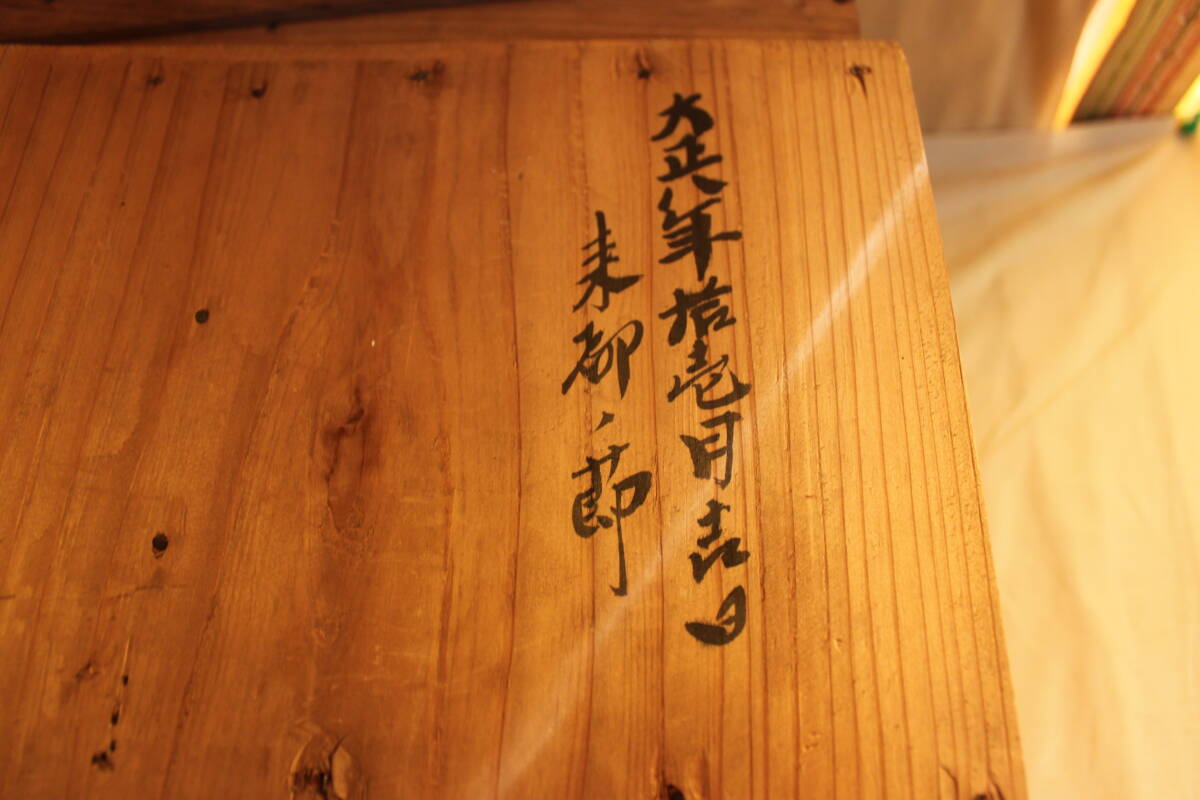 大正八年拾壱月吉日
来都ノ節